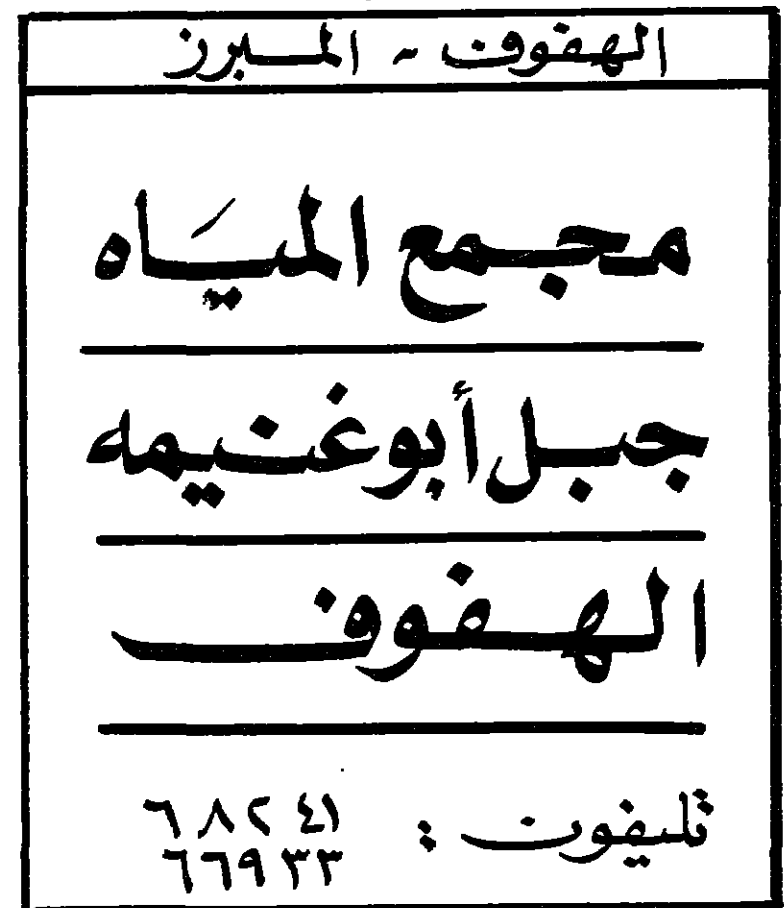 الهفوف - المبرز
مجمع المياه
جبل أبو غنيمه
الهفوف
تليفون : ٦٨٢٤١
٦٦٩٣٣